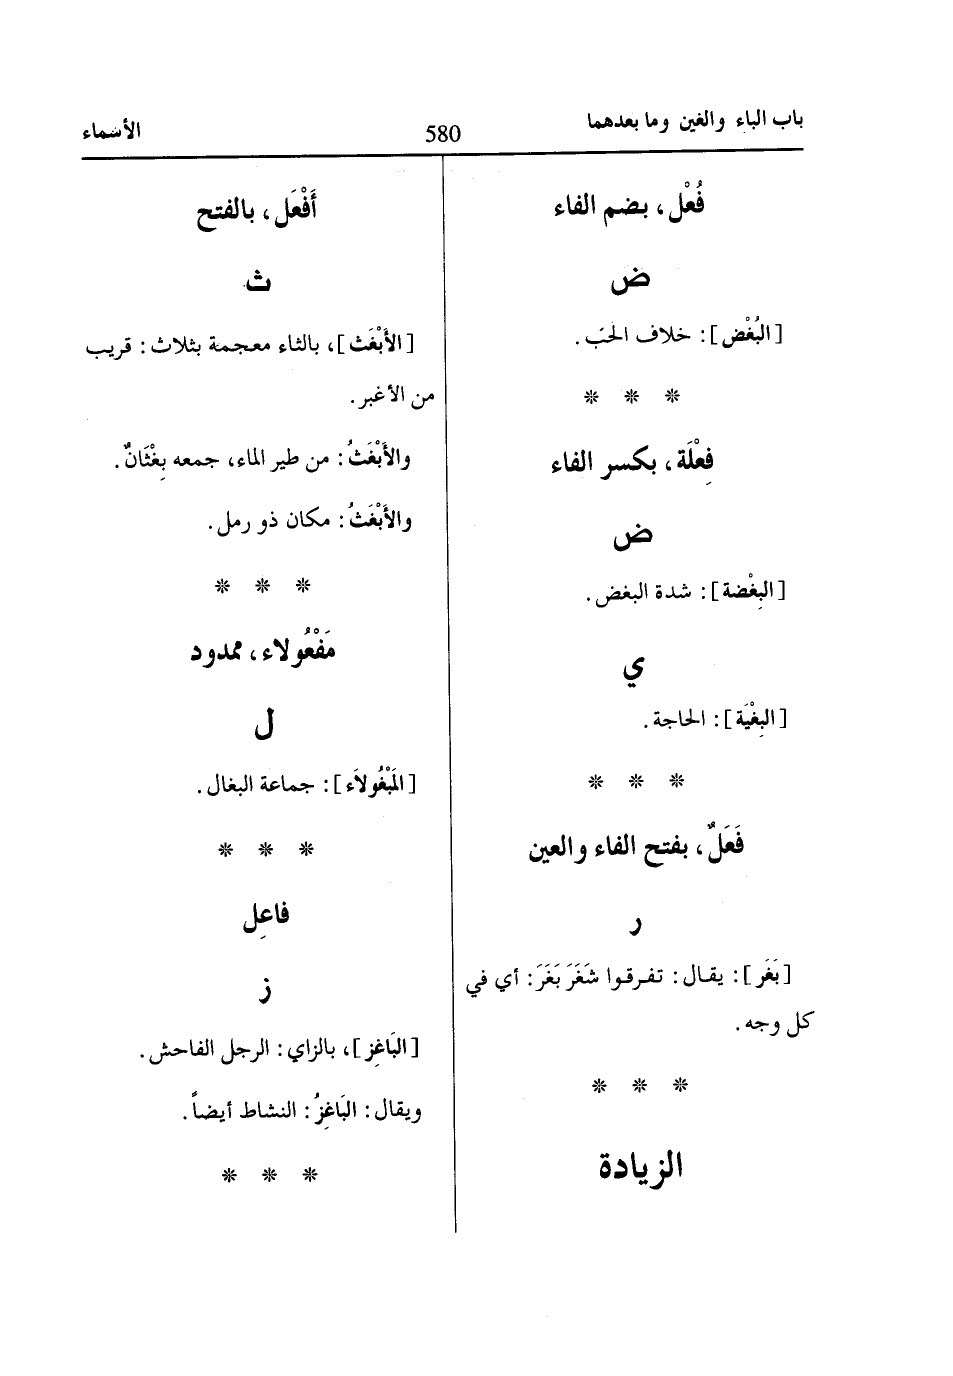 باب الباء والغين وما بعدهما
580
الأسماء
فُعْل، بضم الفاء
ض
[البُغْض]: خلاف الحبّ.
* * *
فِعْلَة، بكسر الفاء
ض
[البِغْضة]: شدة البغض.
ي
[البِغْيَة]: الحاجة.
* * *
فَعَلٌ، بفتح الفاء والعين
ر
[بَغَر]: يقال: تفرقوا شَغَرَ بَغَرَ: أي في
كل وجه.
* * *
الزيادة
أَفْعَل، بالفتح
ث
[الأَبْغَث]، بالثاء معجمة بثلاث: قريب
من الأغبر.
والأَبْغَثُ: من طير الماء، جمعه بِغْثَانٌ.
والأَبْغَثُ: مكان ذو رمل.
* * *
مَفْعُولاء، ممدود
ل
[المَبْغُولاَء]: جماعة البغال.
* * *
فاعِل
ز
[البَاغِز]، بالزاي: الرجل الفاحش.
ويقال: البَاغِزُ: النشاط أيضاً.
* * *